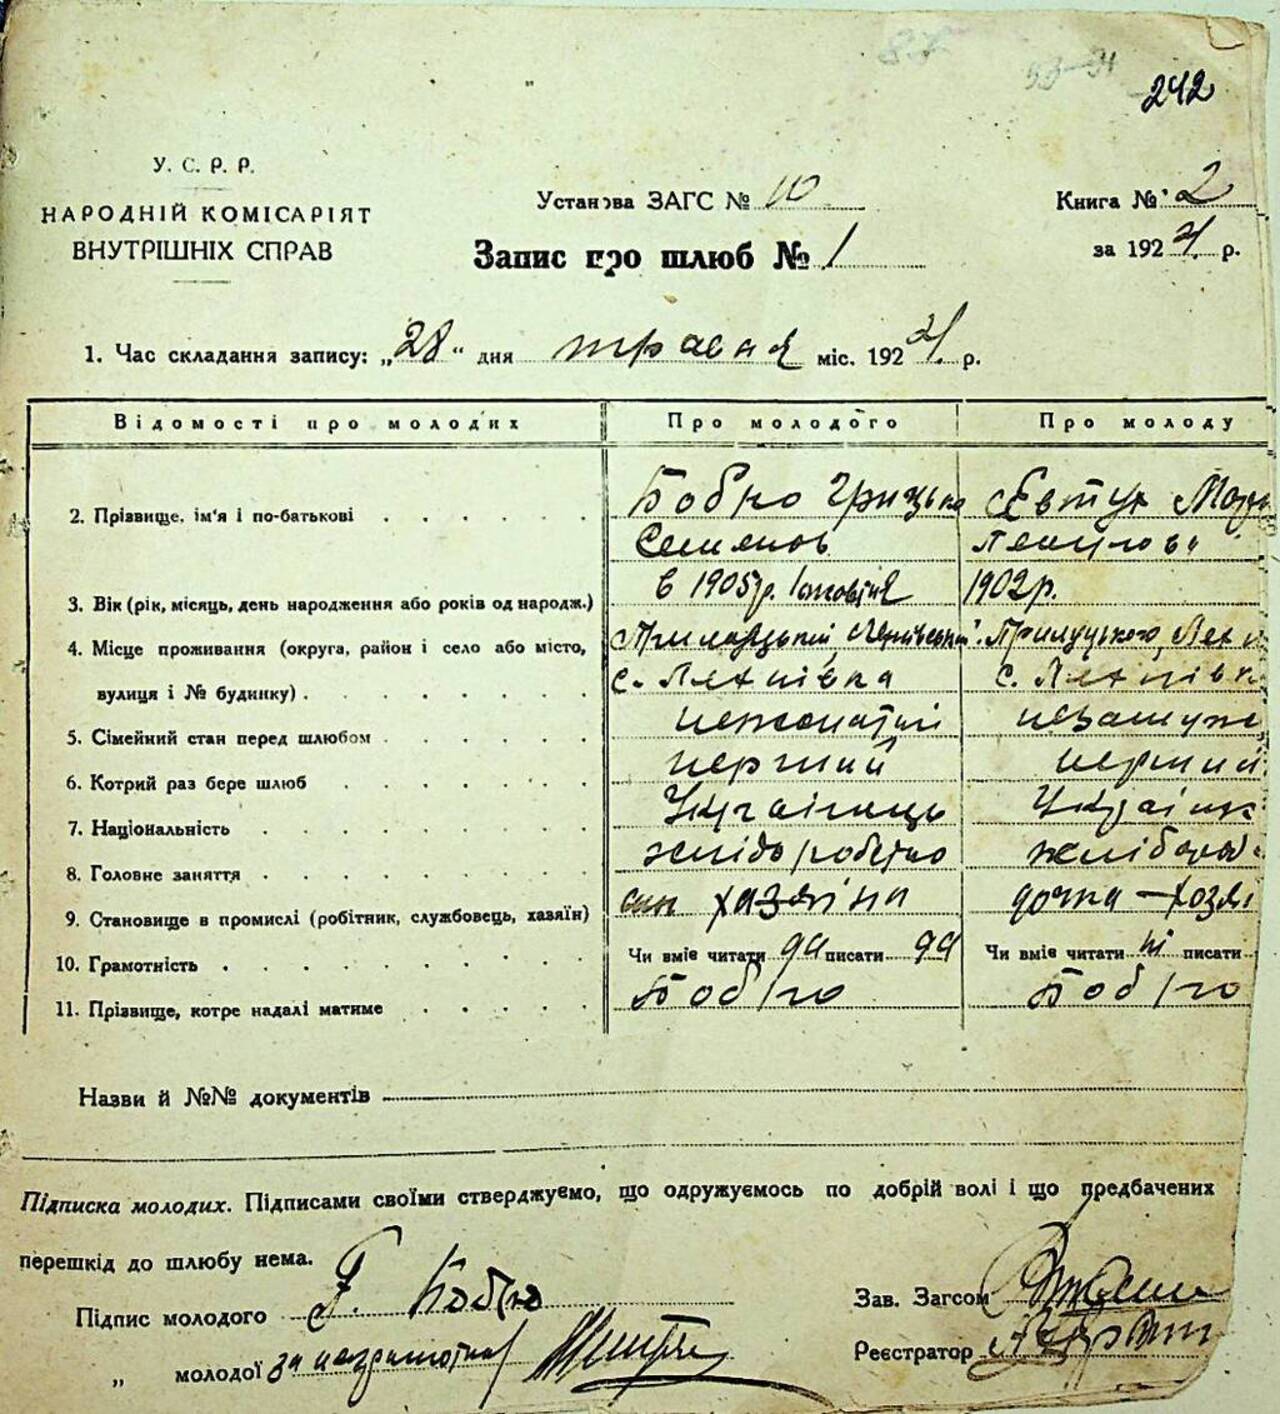 242
У. С. Р. Р.
НАРОДНІЙ КОМІСАРІЯТ
ВНУТРІШНІХ СПРАВ
Установа ЗАГС № 10
Книга № 2
за 1924 р.
Запис про шлюб № 1
1. Час складання запису: „28“ дня травня міс. 1924 р.
Відомості про молодих Про молодого Про молоду
2. Прізвище, ім'я і по-батькові Бобко Грицько Євтух
Семенов
3. Вік (рік, місяць, день народження або років од народж.) в 1905 р. 1902 р.
4. Місце проживання (округа, район і село або місто, Прилуцького
вулиця і № будинку) с. с.
5. Сімейний стан перед шлюбом нежонатий незамуж
6. Котрий раз бере шлюб перший перший
7. Національність Українець Українк
8. Головне заняття
9. Становище в промислі (робітник, службовець, хазяїн) син хазяіна дочка — хозя
10. Грамотність Чи вміє читати да писати да Чи вміє читати ні писати
11. Прізвище, котре надалі матиме Бобко Бобко
Назви й №№ документів
Підписка молодих. Підписами своїми стверджуємо, що одружуємось по добрій волі і що предбачених
перешкід до шлюбу нема.
Підпис молодого Г. Бобко
Зав. Загсом
„ молодої за неграмотну
Реєстратор